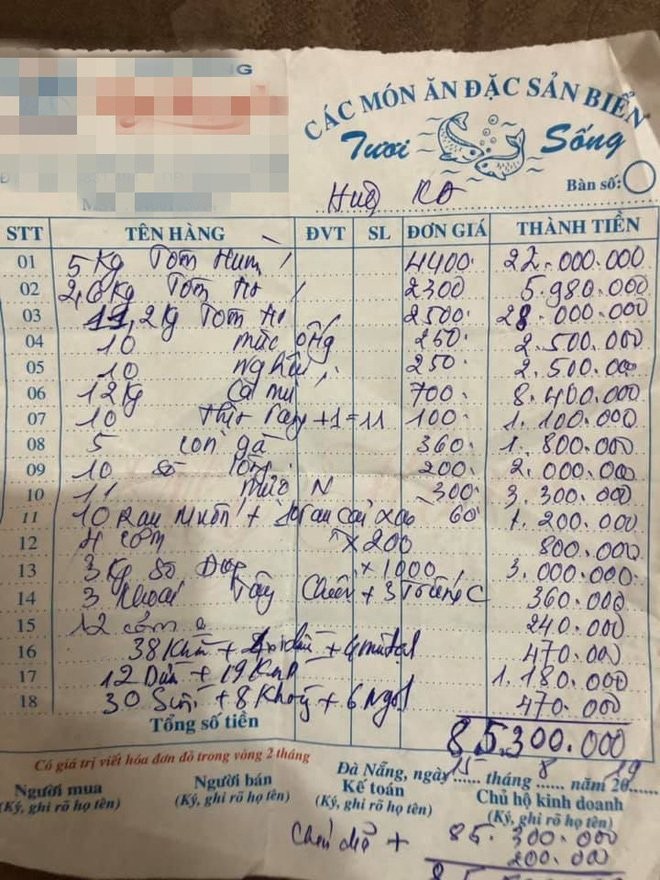 CÁC MÓN ĂN ĐẶC SẢN BIỂN
Tươi Sống
Bàn số:
STT TÊN HÀNG ĐVT SL ĐƠN GIÁ THÀNH TIỀN
01 5 Kg Tôm Hùm 4400 22.000.000
02 2,6 Kg Tôm 2300 5.980.000
03 11,2 Kg Tôm 2500 28.000.000
04 10 mực ống 250 2.500.000
05 10 nghêu 250 2.500.000
06 12 Kg Cá mú 700 8.400.000
07 10 +1 = 11 100 1.100.000
08 5 con gà 360 1.800.000
09 10 200 2.000.000
10 11 mực N 300 3.300.000
11 10 Rau Muốn + 10 rau cải xào 60 1.200.000
12 4 cơm x 200 800.000
13 3 Kg Sò x 1000 3.000.000
14 3 Khoai Tây Chiên + 3 Trứng C 360.000
15 12 cơm 240.000
16 38 Khăn + + 4 470.000
17 12 Dừa + 19 1.180.000
18 30 + 8 + 6 470.000
Tổng số tiền 85.300.000
Có giá trị viết hóa đơn đỏ trong vòng 2 tháng
Đà Nẵng, ngày 15 tháng 8 năm 2019
Người mua Người bán Kế toán Chủ hộ kinh doanh
(Ký, ghi rõ họ tên) (Ký, ghi rõ họ tên) (Ký, ghi rõ họ tên) (Ký, ghi rõ họ tên)
+ 85.300.000
200.000